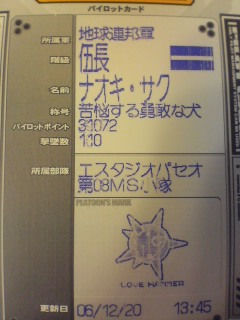 パイロットカード
所属軍 地球連邦軍
階級 伍長
名前 ナオキ・サク
称号 苦悩する勇敢な犬
パイロットポイント 31072
撃墜数 110
所属部隊 エスタジオパセオ
第08MS小隊
PLATOON'S MARK
LOVE HAMMER
更新日 06/12/20 13:45